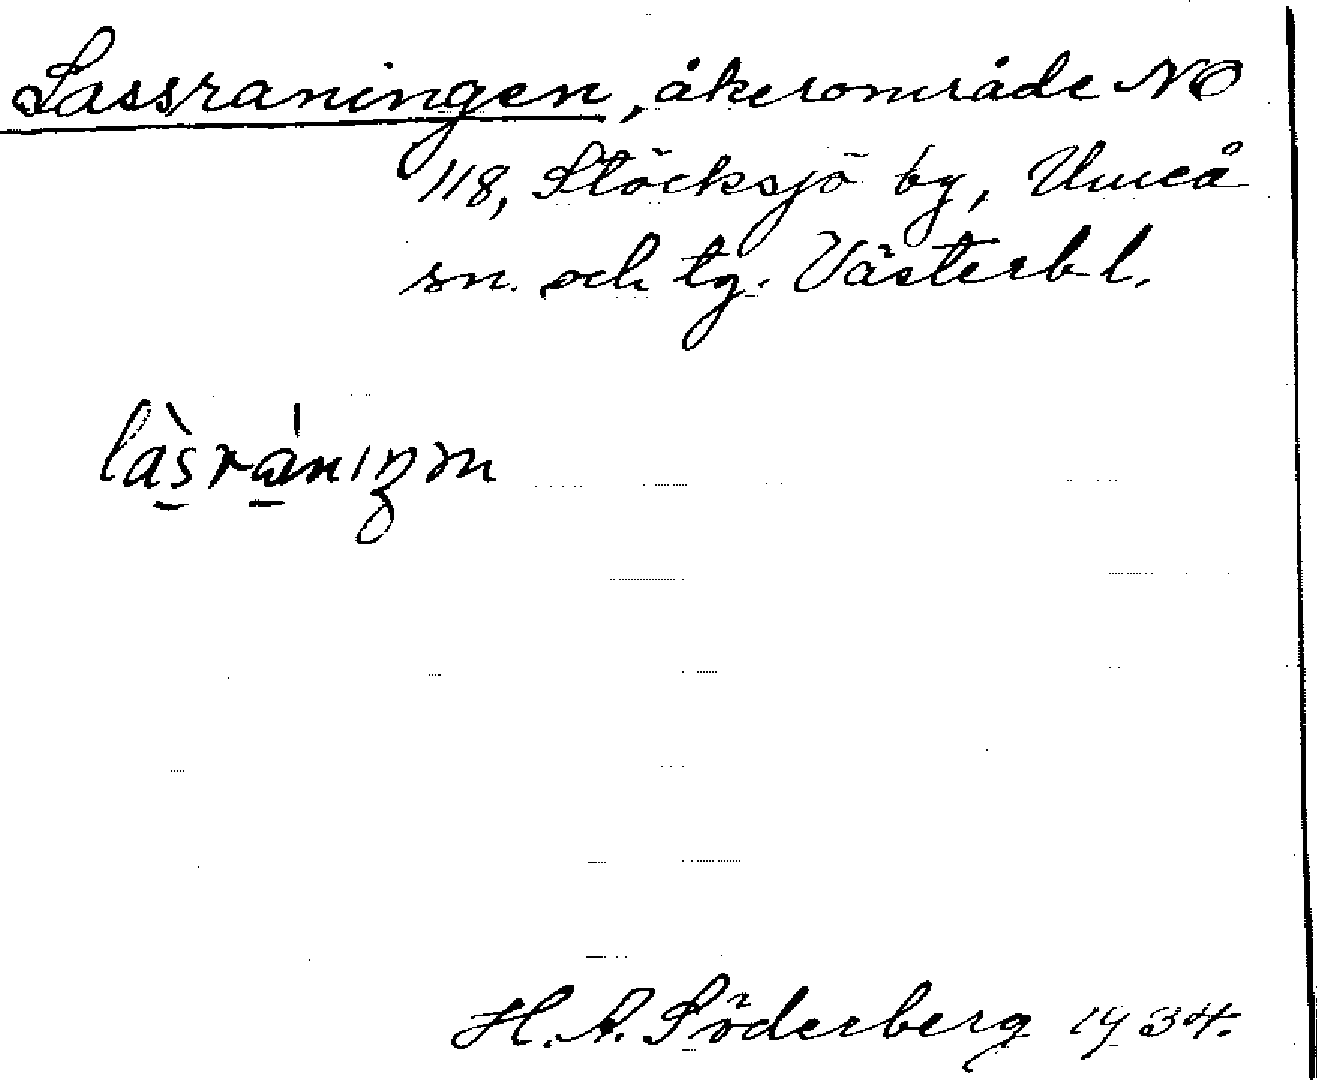 Lassraningen, åkerområde NO
118, Stöcksjö by, Umeå
sn. och tg. Västerb l.
làsránıŋm
H. A. Söderberg 1934.